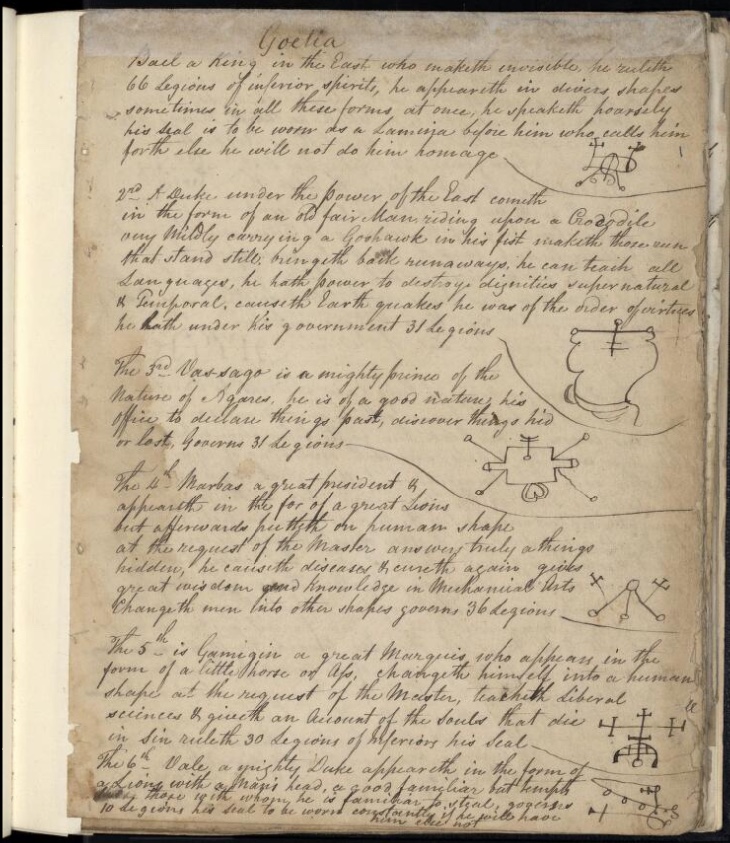 Goetia
Bael a King in the East who maketh invisible, he ruleth
66 Legions of inferior spirits, he appeareth in divers shapes
sometimes in all these forms at once, he speaketh hoarsely
his seal is to be worn as a Lamina before him who calls him
forth else he will not do him homage
2nd A Duke under the Power of the East cometh
in the form of an old fair Man, riding upon a Crocodile
very Mildly carrying a Goshawk in his fist maketh those run
that stand still, bringeth back runaways, he can teach all
Languages, he hath power to destroy dignities supernatural
& Temporal, causeth Earth quakes he was of the order of virtues
he hath under his government 31 Legions
The 3rd Vassago is a mighty prince of the
Nature of Agares, he is of a good nature, his
office to declare things past, discover things hid
or lost, Governs 31 Legions
The 4th Marbas a great president &
appeareth in the for of a great Lions
but afterwards putteth on human shape
at the request of the Master answers truly a things
hidden, he causeth diseases & cureth again gives
great wisdom and Knowledge in Mechanical Arts
Changeth men into other shapes governs 36 Legions
The 5th is Gamigin a great Marquis who appears in the
form of a little horse or Ass, changeth himself into a human
shape at the request of the Master, teacheth Liberal
sciences & giveth an Account of the souls that die
in Sin ruleth 30 Legions of Inferiors his Seal
The 6th Vale a mighty Duke appeareth in the form of
a Lions with a Mans head, a good familiar but tempts
those with whom he is familiar to steal, governs
10 Legions his seal to be worn constantly if he will have
him else not